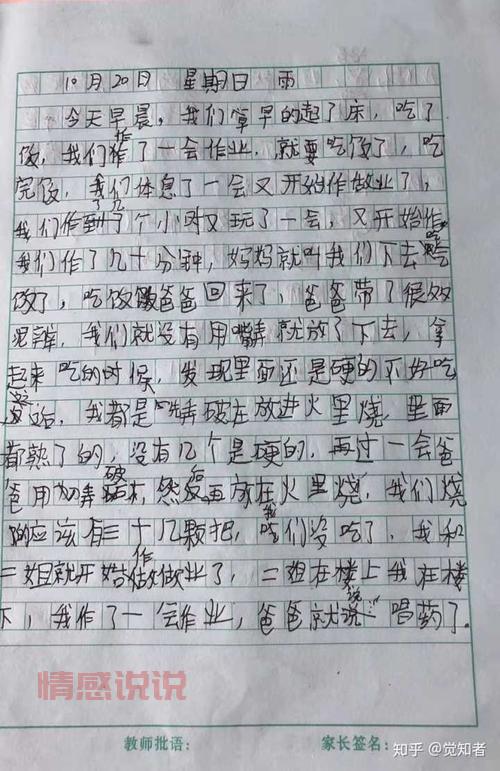 10月20日 星期日 雨
今天早晨，我们算早的起了床，吃了
饭，我们作了一会作业，就要吃饭了，吃
完饭，我们体息了一会又开始作做业了，
我们作到了几个小时又玩了一会，又开始作
我们作了几十分钟，妈妈就叫我们下去吃
饭了，吃饭爸爸回来了，爸爸带了很多
我们就没有用嘴弄就放了下去，拿
起来吃的时候，发现里面还是硬的不好吃
我都是弄破在放进火里烧，里面
都熟了的，没有几个是硬的，再过一会爸
爸用力弄破，然后再放在火里烧，我们烧
应该有三十几颗把，我们没吃了，我和
二姐就开始作做业了，二姐在楼上我在楼
下，我作了一会作业，爸爸就说：喝药了。
情感说说
教师批语： 家长签名：
知乎 @觉知者